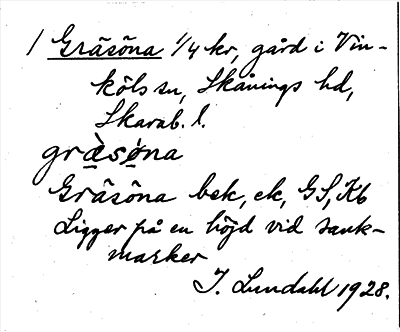 / Gräsöna 1/4 kr, gård i Vin-
köls sn, Skånings hd,
Skarab. l.
gräsöna
Gräsöna bek, ek, GS, Kb
Ligger på en höjd vid sank-
marker
J. Lundahl 1928.